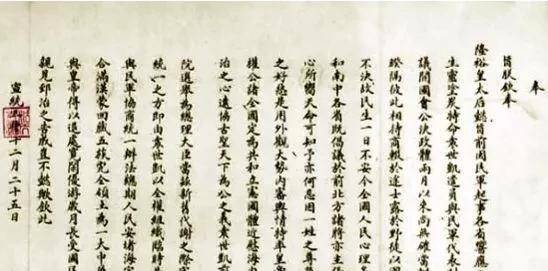 奉
旨朕欽奉
隆裕皇太后懿旨前因國民軍起事各省響應
生靈塗炭特命袁世凱遣員與民軍代表
議開國會公決政體兩月以來尚無確當
暌隔彼此相持商輟於途士露於野徒以
不決故民生一日不安今全國人民心理多
和南中各省既倡議於前北方諸將亦主張
心所嚮天命可知予亦何忍因一姓之尊榮
之好惡是用外觀大勢內審輿情特率皇
權公諸全國定為共和立憲國體近慰海
治之心遠協古聖天下為公之義袁世凱前
院選舉為總理大臣當茲新舊代謝之際宜
統一之方即由袁世凱以全權組織臨時共
與民軍協商統一辦法總期人民安堵海宇
合滿漢蒙回藏五族完全領土為一大中華
與皇帝得以退處寬閒優游歲月長受國民
親見郅治之告成豈不懿歟欽此
宣統三年十二月二十五日